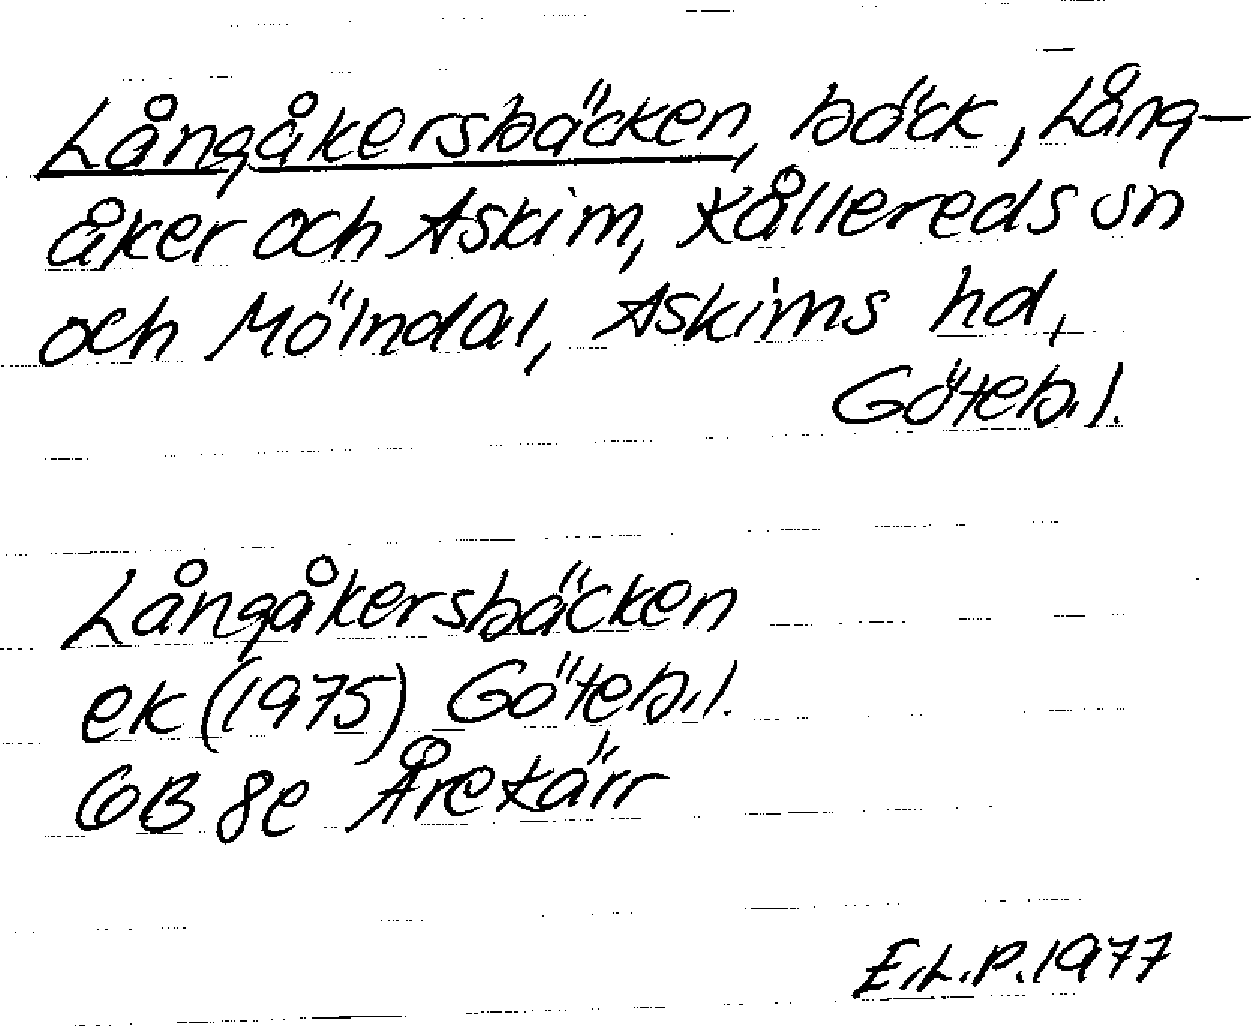 Långåkersbäcken, bäck, Lång-
åker och Askim, Kållereds sn
och Mölndal, Askims hd,
Göteb. l.
Långåkersbäcken
ek (1975) Göteb. l.
GB 8e Årekärr
E.L.P. 1977